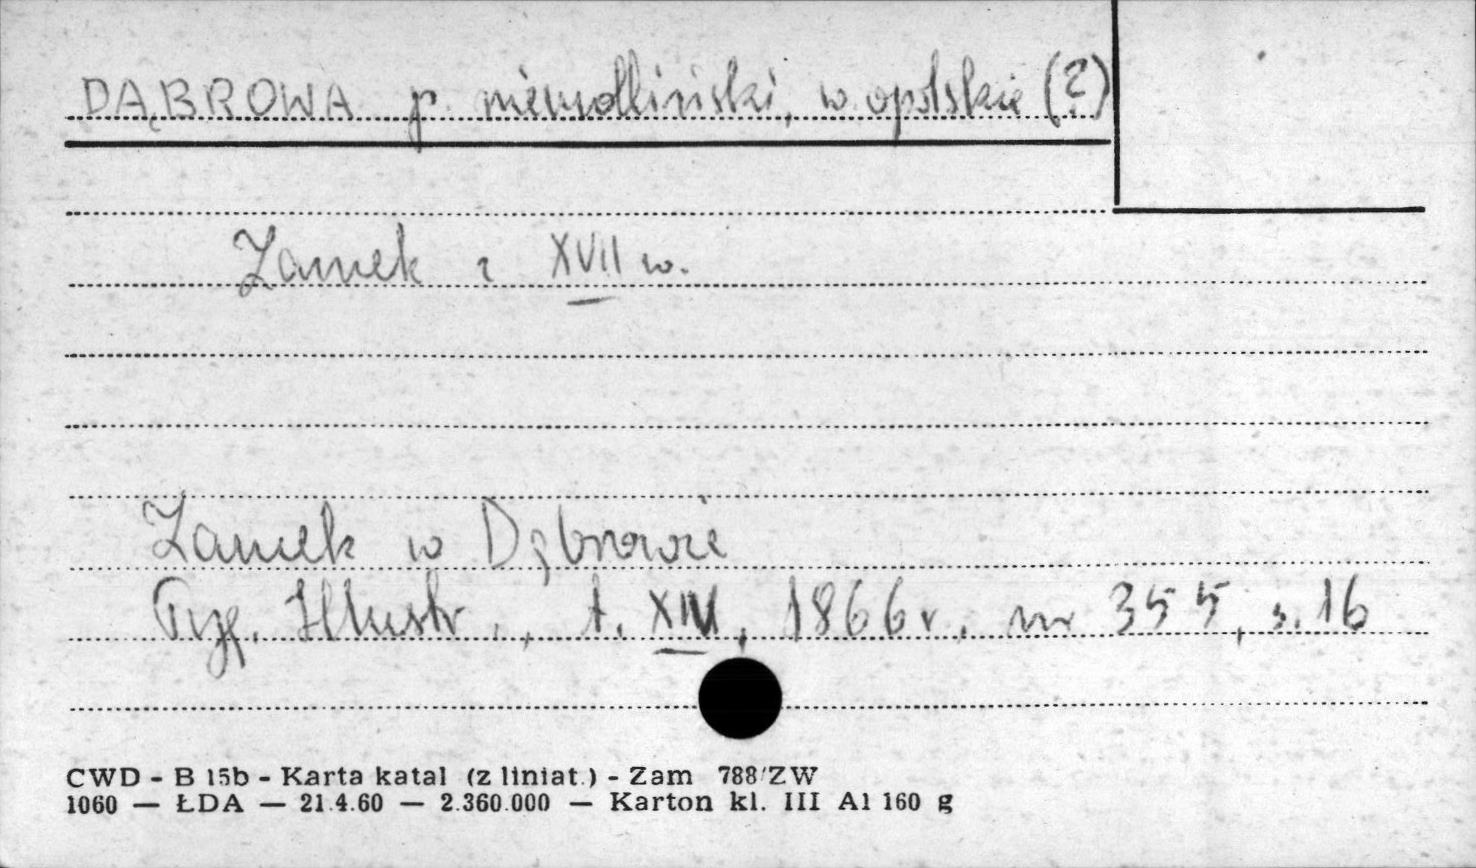 DĄBROWA p. niemodliński, w. opolskie (?)
Zamek z XVII w.
Zamek w Dąbrowie
Tyg. Illustr., t. XIV, 1866 r., nr 355, s. 16
CWD - B 15b - Karta katal (z liniat.) - Zam 788/ZW
1060 — ŁDA — 21.4.60 — 2.360.000 — Karton kl. III A1 160 g